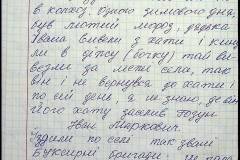 в колхоз. Одного зимового дня,
був лютий мороз, дядька
Івана вивели з хати і кину
ли в діжу (бочку) тай ви
везли за межі села, так
він і не вернувся до хати і
по сей день, а я знаю, де він
його хату заселив
Іван Маркович.
їздили по селі так звані
Буксирні бригади